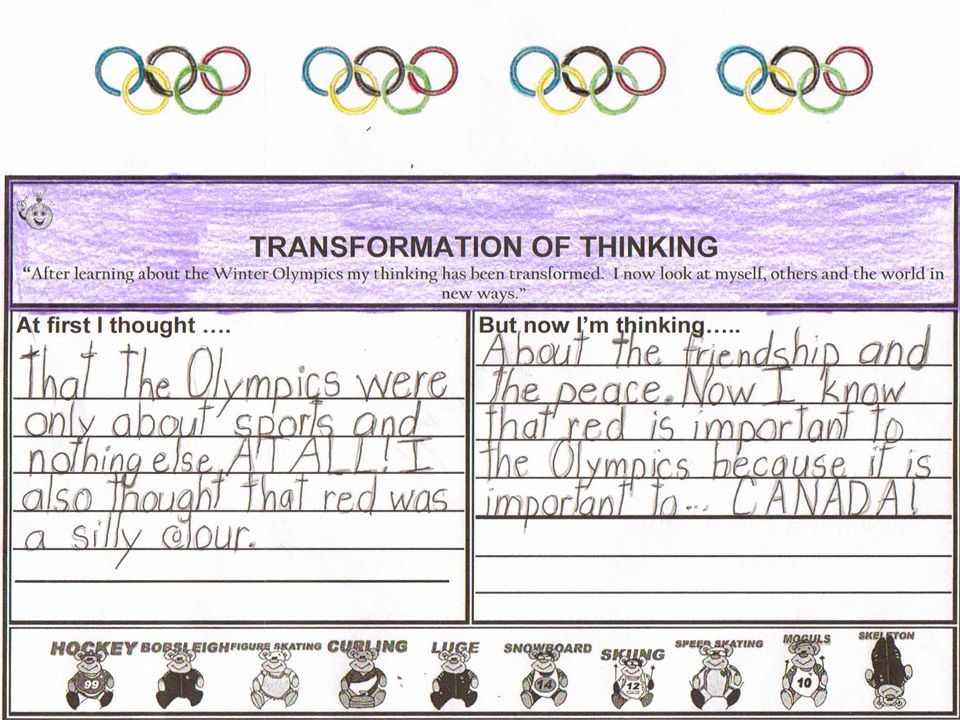 TRANSFORMATION OF THINKING
“After learning about the Winter Olympics my thinking has been transformed. I now look at myself, others and the world in
new ways.”
At first I thought ….
That The Olympics were
only about sports and
nothing else AT ALL! I
also thought that red was
a silly colour.
But now I'm thinking…..
About the friendship and
the peace. Now I know
that red is important to
the Olympics because it is
important to... CANADA!
HOCKEY BOBSLEIGH FIGURE SKATING CURLING LUGE SNOWBOARD SKIING SPEED SKATING MOGULS SKELETON
99 14 12 10